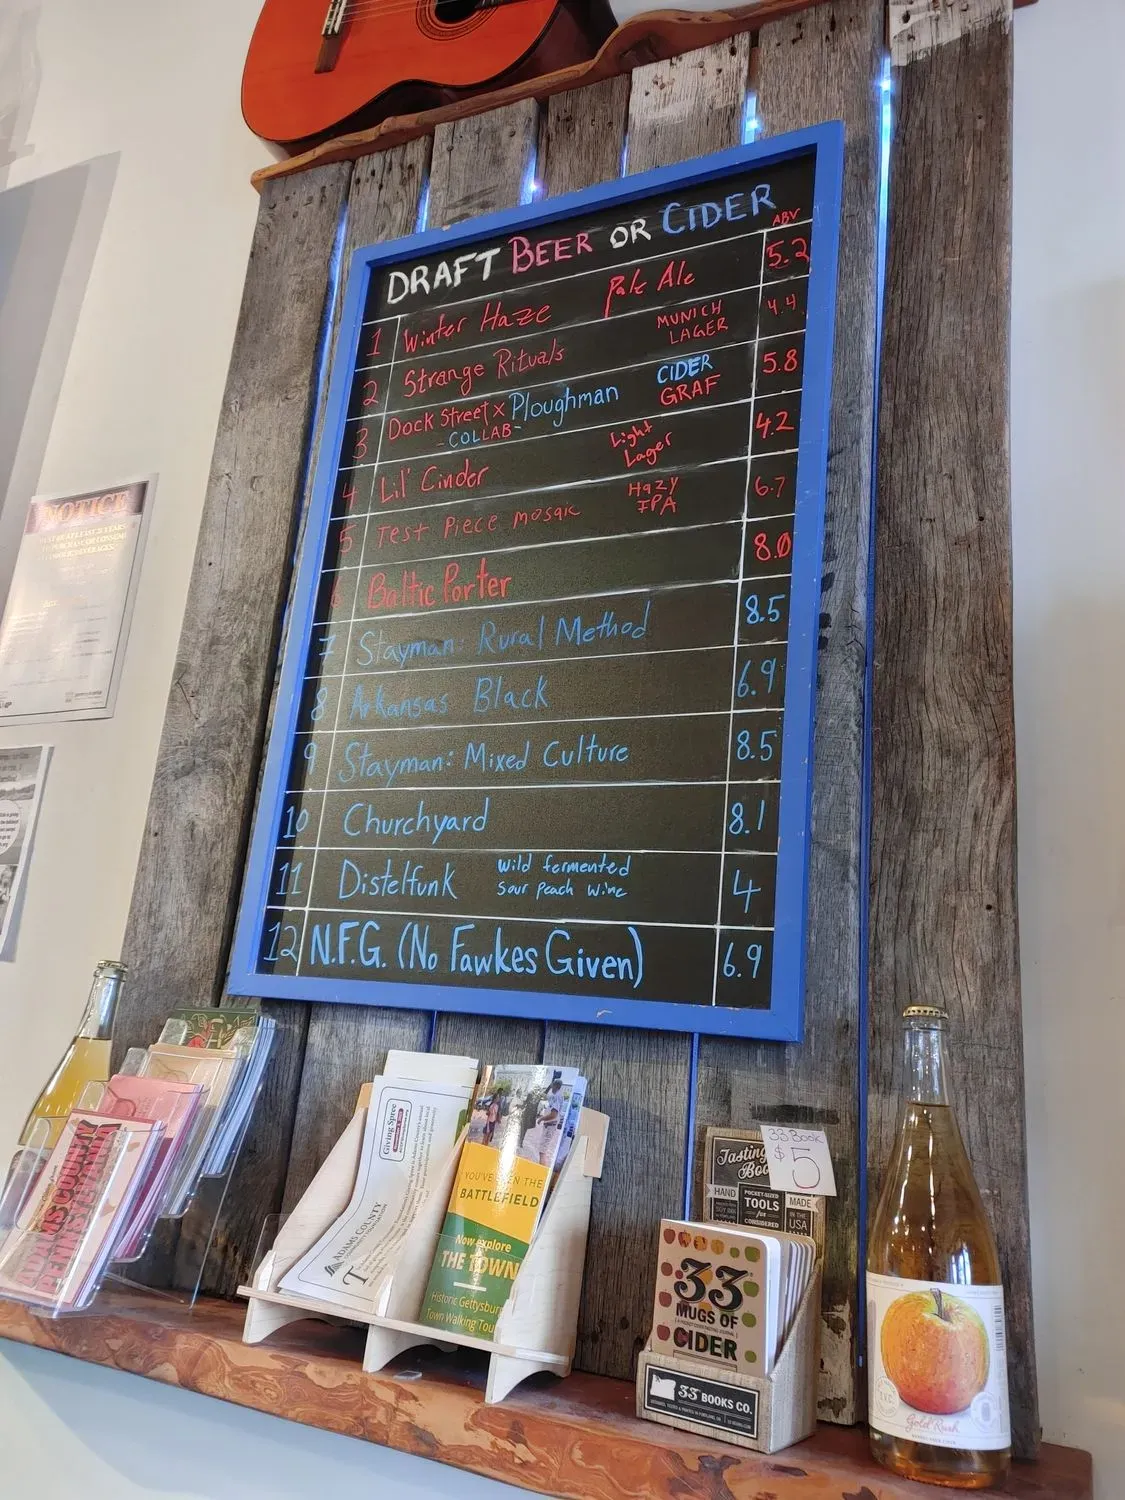 DRAFT BEER OR CIDER
ABV
1 Winter Haze Pale Ale 5.2
2 Strange Rituals MUNICH LAGER 4.4
3 Dock Street x Ploughman CIDER GRAF 5.8
-COLLAB-
4 Lil' Cinder Light Lager 4.2
5 Test Piece mosaic Hazy IPA 6.7
6 Baltic Porter 8.0
7 Stayman: Rural Method 8.5
8 Arkansas Black 6.9
9 Stayman: Mixed Culture 8.5
10 Churchyard 8.1
11 Distelfunk wild fermented sour peach wine 4
12 N.F.G. (No Fawkes Given) 6.9
NOTICE
Giving Spree
ADAMS COUNTY
YOU'VE SEEN THE
BATTLEFIELD
Now explore
THE TOWN
Historic Gettysburg
Town Walking Tour
33 Book
$5
Tasting
HAND
POCKET-SIZED
TOOLS
for
CONSIDERED
MADE
IN THE
USA
33
MUGS OF
CIDER
33 BOOKS CO.
Gold Rush